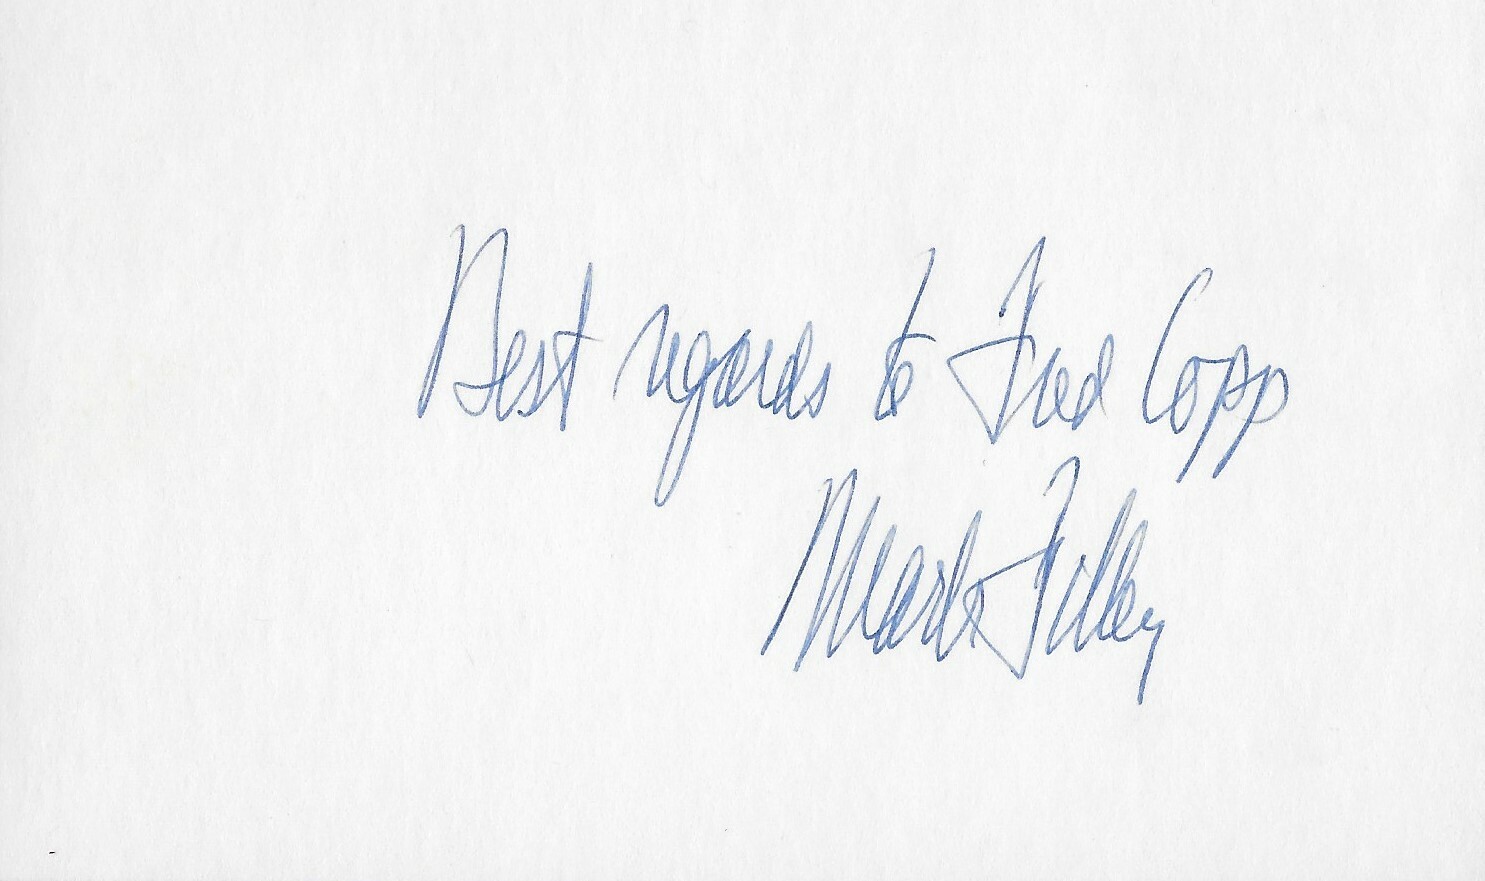 Best regards to Fred Copp
Mark Tilley